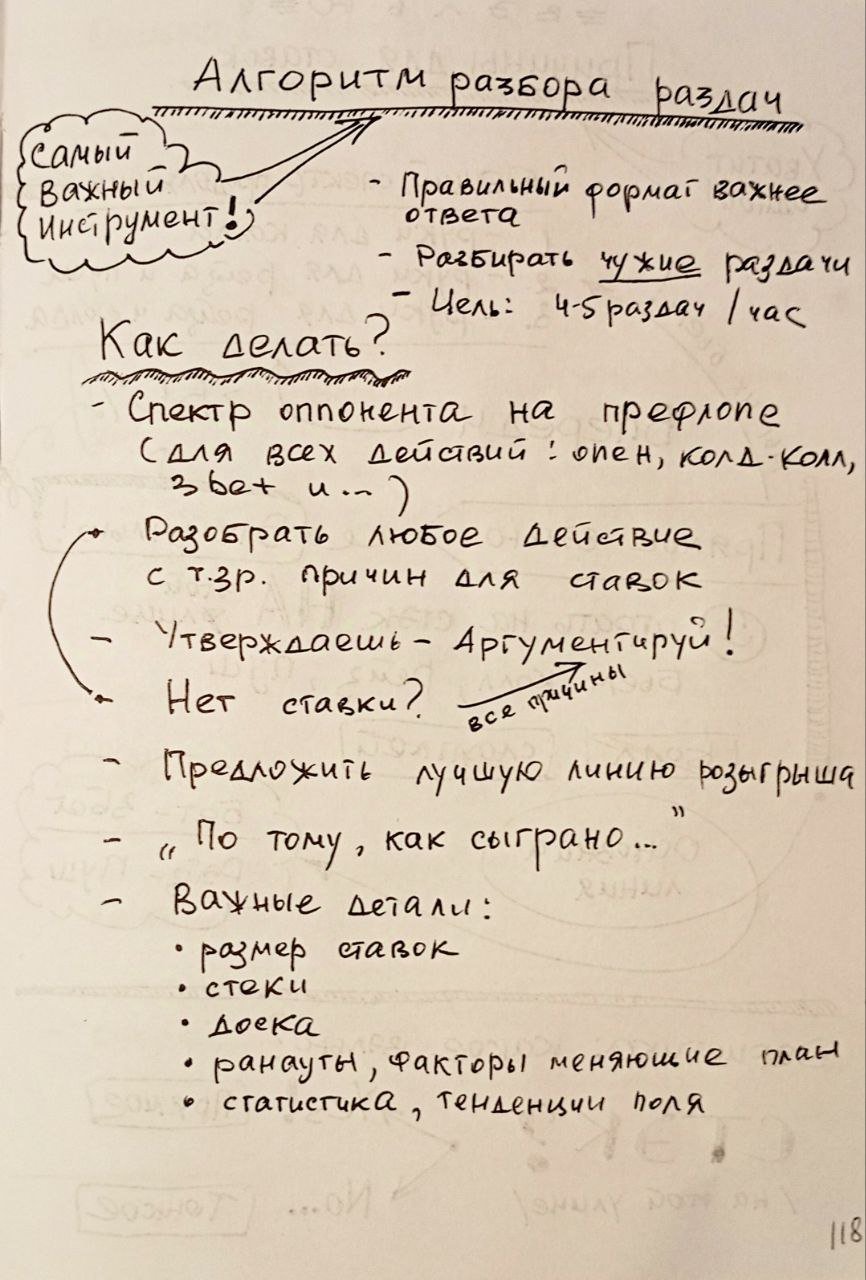 Алгоритм разбора раздач
Самый
Важный
Инструмент!
- Правильный формат важнее
ответа
- Разбирать чужие раздачи
- Цель: 4-5 раздач / час
Как делать?
- Спектр оппонента на префлопе
(для всех действий: опен, колд-колл,
3bet и ...)
Разобрать любое действие
с т.зр. причин для ставок
- Утверждаешь - Аргументируй!
- Нет ставки?
все причины
- Предложить лучшую линию розыгрыша
- „По тому, как сыграно..."
- Важные детали:
• размер ставок
• стеки
• доска
• ранауты, факторы меняющие план
• статистика, тенденции поля
118